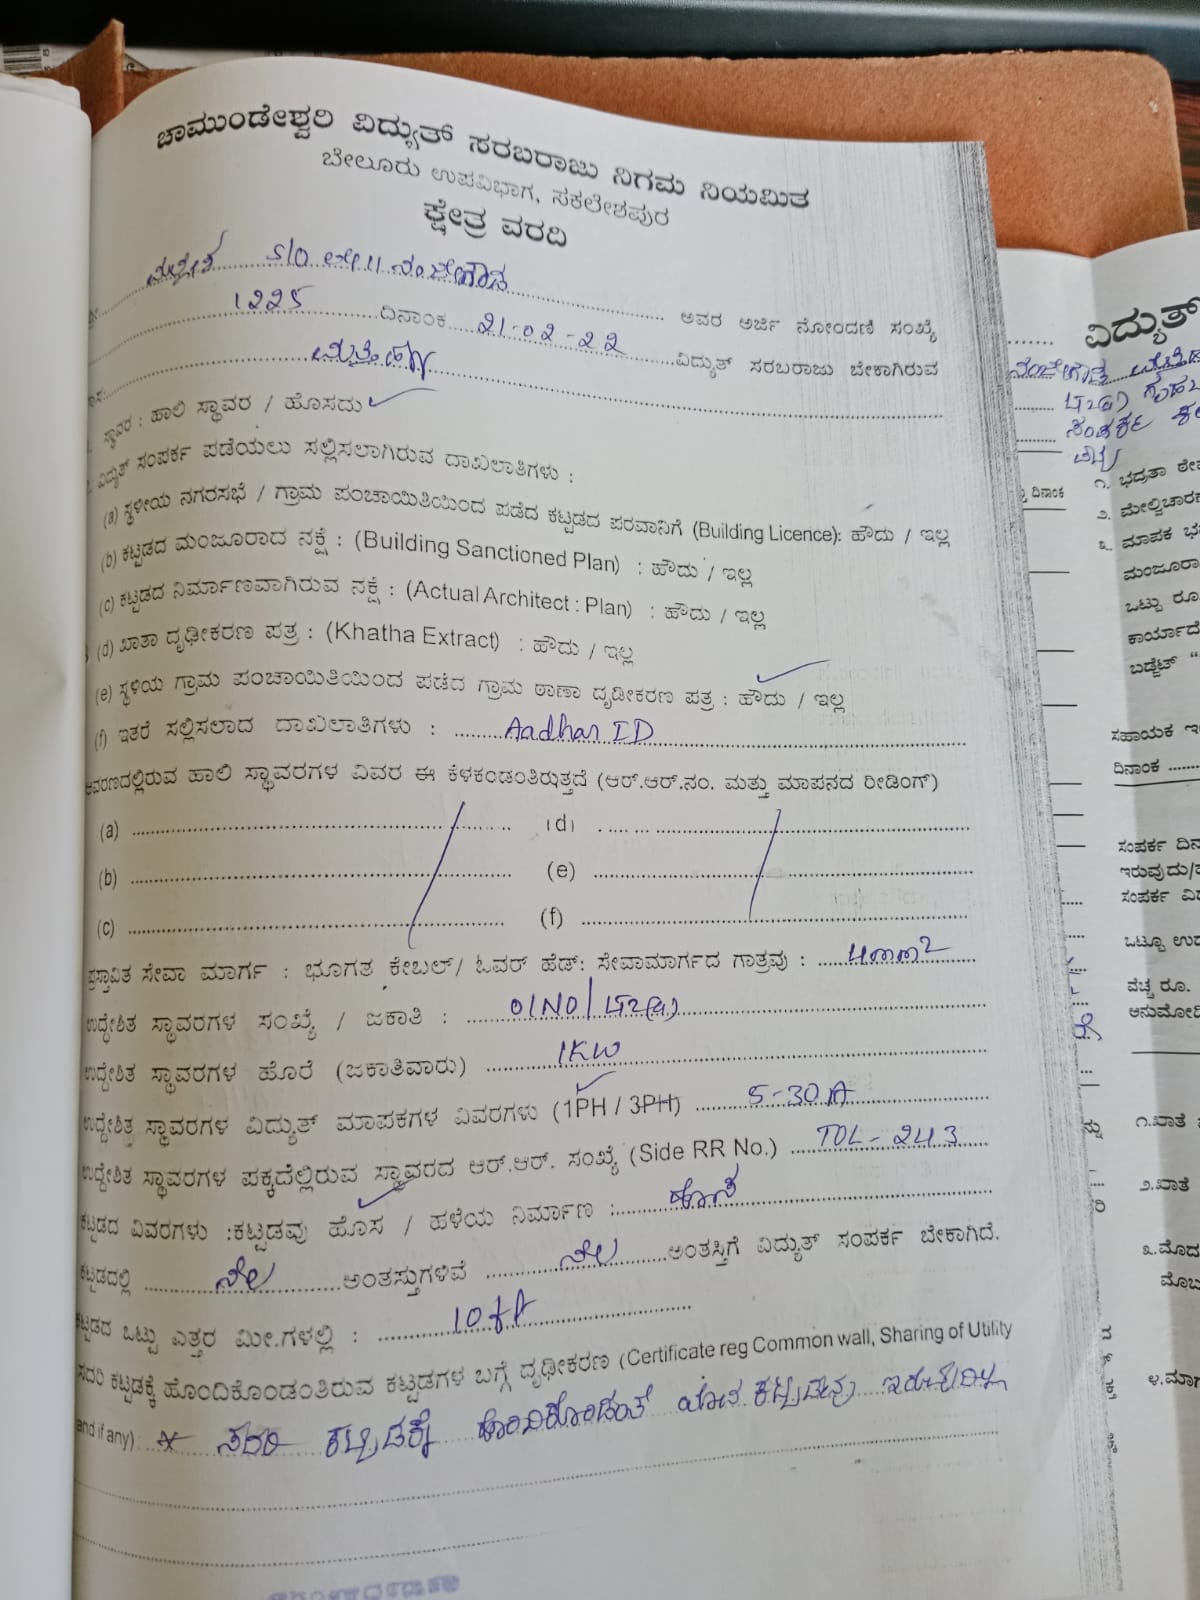 ಚಾಮುಂಡೇಶ್ವರಿ ವಿದ್ಯುತ್ ಸರಬರಾಜು ನಿಗಮ ನಿಯಮಿತ
ಬೇಲೂರು ಉಪವಿಭಾಗ, ಸಕಲೇಶಪುರ
ಕ್ಷೇತ್ರ ವರದಿ
S/O ಲೇ|| ನಂಜೇಗೌಡ ಅವರ ಅರ್ಜಿ ನೋಂದಣಿ ಸಂಖ್ಯೆ
1225 ದಿನಾಂಕ 21-02-22 ವಿದ್ಯುತ್ ಸರಬರಾಜು ಬೇಕಾಗಿರುವ
ಸ್ಥಾವರ : ಹಾಲಿ ಸ್ಥಾವರ / ಹೊಸದು
ವಿದ್ಯುತ್ ಸಂಪರ್ಕ ಪಡೆಯಲು ಸಲ್ಲಿಸಲಾಗಿರುವ ದಾಖಲಾತಿಗಳು :
(a) ಸ್ಥಳೀಯ ನಗರಸಭೆ / ಗ್ರಾಮ ಪಂಚಾಯಿತಿಯಿಂದ ಪಡೆದ ಕಟ್ಟಡದ ಪರವಾನಿಗೆ (Building Licence): ಹೌದು / ಇಲ್ಲ
(b) ಕಟ್ಟಡದ ಮಂಜೂರಾದ ನಕ್ಷೆ : (Building Sanctioned Plan) : ಹೌದು / ಇಲ್ಲ
(c) ಕಟ್ಟಡದ ನಿರ್ಮಾಣವಾಗಿರುವ ನಕ್ಷೆ : (Actual Architect : Plan) : ಹೌದು / ಇಲ್ಲ
(d) ಖಾತಾ ದೃಢೀಕರಣ ಪತ್ರ : (Khatha Extract) : ಹೌದು / ಇಲ್ಲ
(e) ಸ್ಥಳಿಯ ಗ್ರಾಮ ಪಂಚಾಯಿತಿಯಿಂದ ಪಡೆದ ಗ್ರಾಮ ಠಾಣಾ ದೃಡೀಕರಣ ಪತ್ರ : ಹೌದು / ಇಲ್ಲ
(f) ಇತರೆ ಸಲ್ಲಿಸಲಾದ ದಾಖಲಾತಿಗಳು : Aadhar ID
ಆವರಣದಲ್ಲಿರುವ ಹಾಲಿ ಸ್ಥಾವರಗಳ ವಿವರ ಈ ಕೆಳಕಂಡಂತಿರುತ್ತದೆ (ಆರ್.ಆರ್.ನಂ. ಮತ್ತು ಮಾಪನದ ರೀಡಿಂಗ್)
(a) (d)
(b) (e)
(c) (f)
ಪ್ರಸ್ತಾವಿತ ಸೇವಾ ಮಾರ್ಗ : ಭೂಗತ ಕೇಬಲ್/ ಓವರ್ ಹೆಡ್: ಸೇವಾಮಾರ್ಗದ ಗಾತ್ರವು : 4mm²
ಉದ್ಧೇಶಿತ ಸ್ಥಾವರಗಳ ಸಂಖ್ಯೆ / ಜಕಾತಿ : 01NO/LT2(a)
ಉದ್ದೇಶಿತ ಸ್ಥಾವರಗಳ ಹೊರೆ (ಜಕಾತಿವಾರು) 1KW
ಉದ್ದೇಶಿತ ಸ್ಥಾವರಗಳ ವಿದ್ಯುತ್ ಮಾಪಕಗಳ ವಿವರಗಳು (1PH / 3PH) 5-30A
ಉದ್ದೇಶಿತ ಸ್ಥಾವರಗಳ ಪಕ್ಕದೆಲ್ಲಿರುವ ಸ್ಥಾವರದ ಆರ್.ಆರ್. ಸಂಖ್ಯೆ (Side RR No.) TOL-243
ಕಟ್ಟಡದ ವಿವರಗಳು :ಕಟ್ಟಡವು ಹೊಸ / ಹಳೆಯ ನಿರ್ಮಾಣ : ಹೊಸ
ಕಟ್ಟಡದಲ್ಲಿ ನೆಲ ಅಂತಸ್ತುಗಳಿವೆ ನೆಲ ಅಂತಸ್ತಿಗೆ ವಿದ್ಯುತ್ ಸಂಪರ್ಕ ಬೇಕಾಗಿದೆ.
ಕಟ್ಟಡದ ಒಟ್ಟು ಎತ್ತರ ಮೀ.ಗಳಲ್ಲಿ : 10ft
ಸದರಿ ಕಟ್ಟಡಕ್ಕೆ ಹೊಂದಿಕೊಂಡಂತಿರುವ ಕಟ್ಟಡಗಳ ಬಗ್ಗೆ ದೃಢೀಕರಣ (Certificate reg Common wall, Sharing of Utility
and if any) : * ಸದರಿ ಕಟ್ಟಡಕ್ಕೆ ಹೊಂದಿಕೊಂಡಂತೆ ಯಾವ ಕಟ್ಟಡವು ಇರುವುದಿಲ್ಲ
ವಿದ್ಯುತ್
ದಿನಾಂಕ
೧. ಭದ್ರತಾ ಠೇವ
೨. ಮೇಲ್ವಿಚಾರಣ
೩. ಮಾಪಕ ಭ
ಮಂಜೂರಾ
ಒಟ್ಟು ರೂ.
ಕಾರ್ಯಾದೇ
ಬಡ್ಜೆಟ್ "
ಸಹಾಯಕ ಇ
ದಿನಾಂಕ
ಸಂಪರ್ಕ ದಿನ
ಇರುವುದು/
ಸಂಪರ್ಕ ವಿ
ಒಟ್ಟೂ ಉದ
ವೆಚ್ಚ ರೂ.
ಅನುಮೋದಿ
೧.ಖಾತೆ
೨.ಖಾತೆ
೩.ಮೊದ
ಮೊಬ
೪.ಮಾಗ